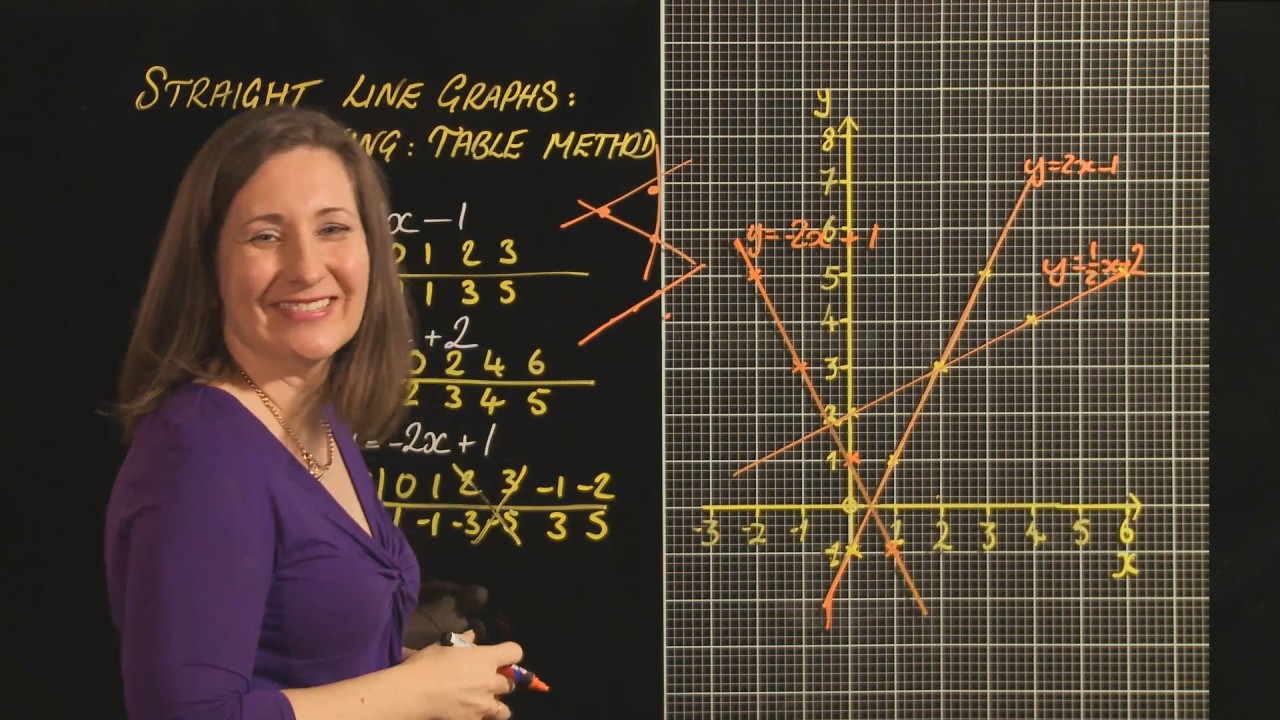 STRAIGHT LINE GRAPHS:
NG: TABLE METHOD
x-1
0 1 2 3
1 3 5
+2
0 2 4 6
2 3 4 5
= -2x+1
0 1 2 3 -1 -2
1 -1 -3 -5 3 5
y
8
7
6
5
4
3
2
1
-3 -2 -1 1 2 3 4 5 6
-1
x
y=2x-1
y=-2x+1
y=½x+2